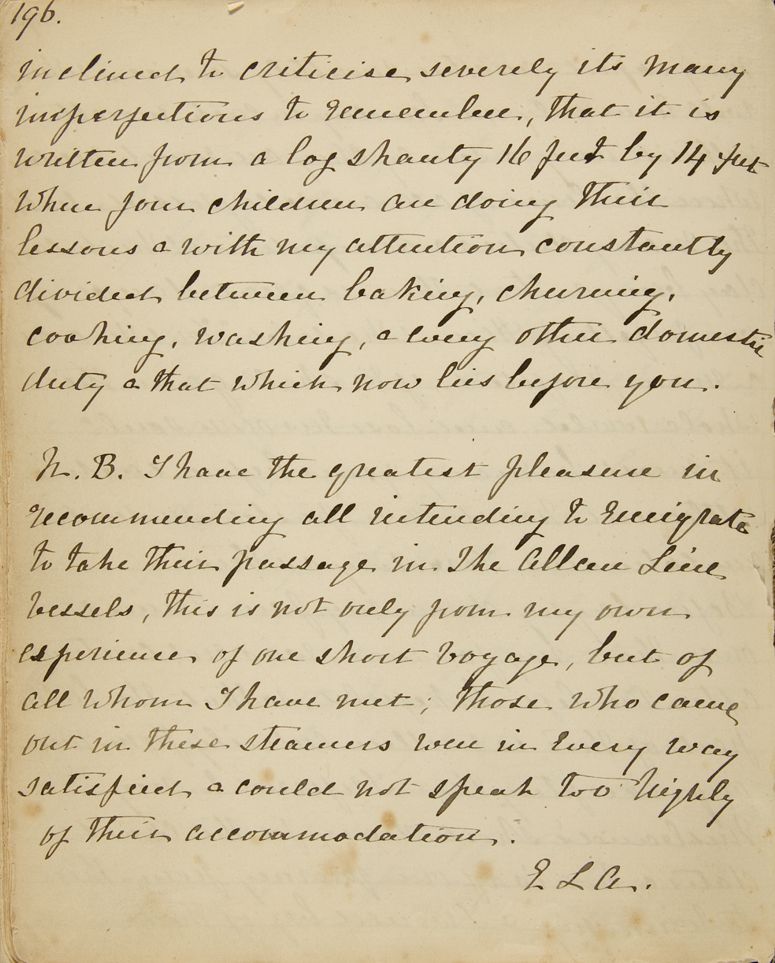 196.
inclined to criticise severely its many
imperfections to remember, that it is
written from a log shanty 16 feet by 14 feet
where four children are doing their
lessons & with my attention constantly
divided between baking, churning,
cooking, washing, & every other domestic
duty & that which now lies before you.
N. B. I have the greatest pleasure in
recommending all intending to Emigrate
to take their passage in The Allan Line
vessels, this is not only from my own
experience of one short voyage, but of
all whom I have met; those who came
out in these steamers were in every way
satisfied & could not speak too highly
of their accommodation.
E L A.